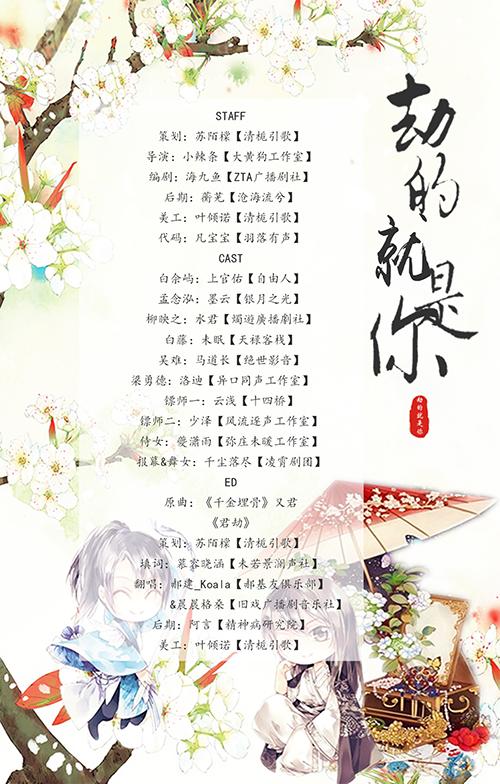 劫的就是你
劫的就是你
STAFF
策划：苏陌樑【清栀引歌】
导演：小辣条【大黄狗工作室】
编剧：海九鱼【ZTA广播剧社】
后期：蘅芜【沧海流兮】
美工：叶倾诺【清栀引歌】
代码：凡宝宝【羽落有声】
CAST
白余屿：上官佑【自由人】
孟念泓：墨云【银月之光】
柳映之：水君【燭遊廣播劇社】
白藤：未眠【天禄客栈】
吴难：马道长【绝世影音】
梁勇德：洛迪【异口同声工作室】
镖师一：云浅【十四桥】
镖师二：少泽【风流逐声工作室】
侍女：夓潇雨【弥庄未暖工作室】
报幕&舞女：千尘落尽【凌霄剧团】
ED
原曲：《千金埋骨》又君
《君劫》
策划：苏陌樑【清栀引歌】
填词：慕容晓涵【未若景澜声社】
翻唱：郝建_Koala【郝基友俱乐部】
&晨晨格桑【旧戏广播剧音乐社】
后期：阿言【精神病研究院】
美工：叶倾诺【清栀引歌】